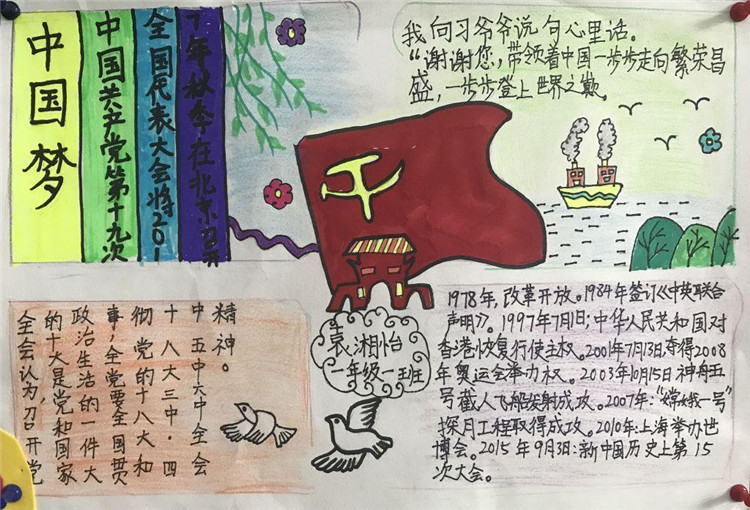 中国梦
中国共产党第十九次
全国代表大会将201
7年秋季在北京召开
我向习爷爷说句心里话。
“谢谢您,带领着中国一步步走向繁荣昌
盛,一步步登上世界之。
全会认为,召开党
的十大是党和国家
政治生活的一件大
事,全党要全国贯
彻党的十八大和
十八大三中·四
中五中六中全会
精神。
袁湘怡
一年级一班
1978年,改革开放。1984年签订《中英联合
声明》。1997年7月1日:中华人民共和国对
香港恢复行使主权。2001年7月13日夺得2008
年奥运会举办权。2003年10月15日神舟五
号载人飞船发射成攻。2007年:“嫦娥一号”
探月工程取得成攻。2010年:上海举办世
博会。2015年9月3日:新中国历史上第15
次大会。